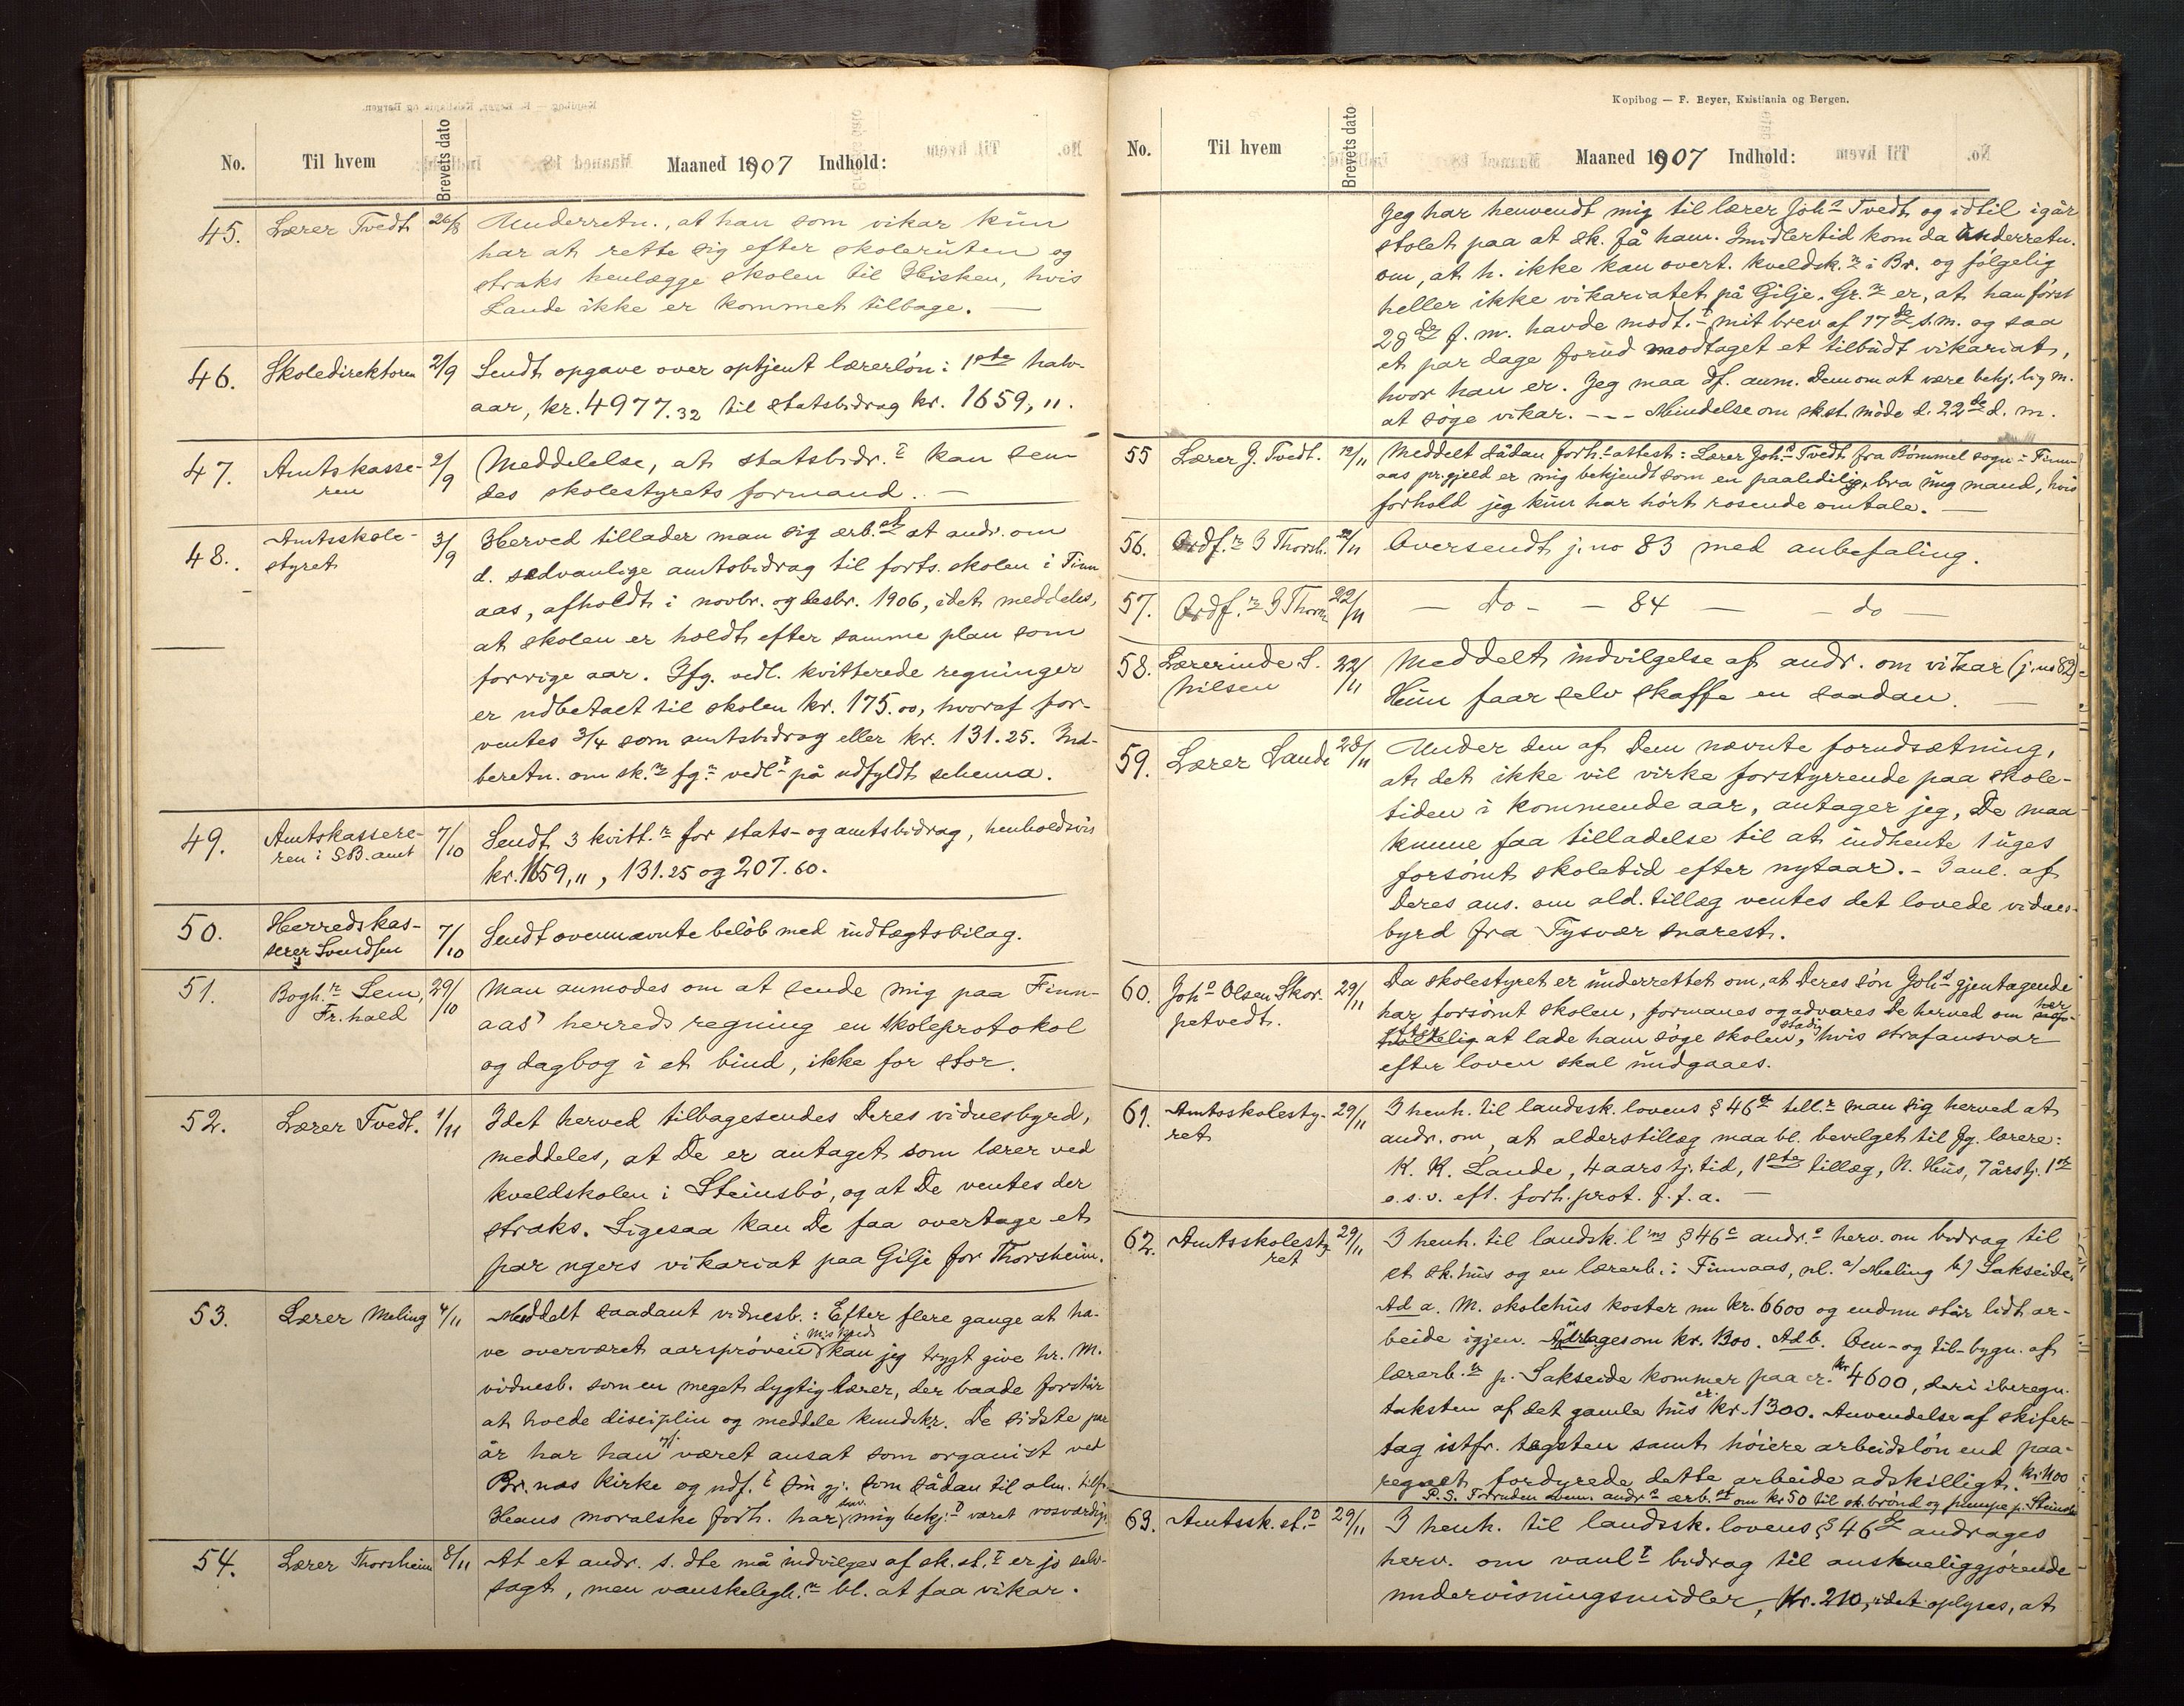 No. Til hvem Brevets dato Maaned 1907 Indhold:
45. Lærer Tvedt 26/8 Underretn., at han som vikar kun
har at rette sig efter skoleruten og
straks henlægge skolen til Hisken, hvis
Lande ikke er kommet tilbage. —
46. Skoledirektøren 2/9 Sendt opgave over optjent lærerløn i 1ste halv-
aar, kr. 4977.32 til statsbidrag kr. 1659,„.
47. Amtskasse- 2/9 Meddelelse, at statsbidr. t kan sen-
ren des skolestyrets formand. —
48. Amtsskole- 3/9 Herved tillader man sig ærb.st at andr. om
styret d. sædvanlige amtsbidrag til forts. skolen i Finn
aas, afholdt i novbr. og desbr. 1906, idet meddeles,
at skolen er holdt efter samme plan som
forrige aar. Ifg. vedl. kvitterede regninger
er udbetalt til skolen kr. 175.00, hvoraf for-
ventes 3/4 som amtsbidrag eller kr. 131.25. Ind-
beretn. om sk.n fg.r vedl.t på udfyldt schema.
49. Amtskassere- 7/10 Sendt 3 kvitt.r for stats- og amtsbidrag, henholdsvis
ren i SB. amt kr. 1659,„, 131.25 og 207.60.
50. Herredskas- 7/10 Sendt ovennævnte beløb med indtægtsbilag.
serer Svendsen
51. Bogh.r Sem, 29/10 Man anmodes om at sende mig paa Finn-
Fr.hald aas' herreds regning en skoleprotokol
og dagbog i et bind, ikke for stor.
52. Lærer Tvedt. 1/11 Idet herved tilbagesendes Deres vidnesbyrd,
meddeles, at De er antaget som lærer ved
kveldskolen i Steinsbø, og at De ventes der
straks. Ligesaa kan De faa overtage et
par ugers vikariat paa Gilje for Thorsheim.
53. Lærer Meling 4/11 Meddelt saadant vidnesb.: Efter flere gange at ha-
ve overværet aarsprøven i kan jeg trygt give hr. M.
vidnesb. som en meget dygtig lærer, der baade forstår
at holde disciplin og meddele kundskr. De sidste par
år har han været ansat som organist ved
Br. næs kirke og udf.t sin gj. som sådan til alm. tilfr.
Hans moralske forh. har mig bekj.t været rosværdigt
54. Lærer Thorsheim 8/11 At et andr. s. dte må indvilges af sk. st.t er jo selv-
sagt, men vanskeligh.n bl. at faa vikar.
Kopibog — F. Beyer, Kristiania og Bergen.
No. Til hvem Brevets dato Maaned 1907 Indhold:
Jeg har henvendt mig til lærer Joh.s Tvedt og idtil igår
stolet paa at sk. få ham. Imidlertid kom da underretn.
om, at h. ikke kan overt. kveldsk.n i Br. og følgelig
heller ikke vikariatet på Gilje. Gr.n er, at han først
28de f. m. havde modt.t mit brev af 17de s.m. og saa
et par dage forud modtaget et tilbudt vikariat,
hvor han er. Jeg maa df. anm. Dem om at være behj.lig m.
at søge vikar. --- Mindelse om skst. møde d. 22de d. m.
55 Lærer J. Tvedt. 12/11 Meddelt sådan forh.s attest: Lærer Joh.s Tvedt fra Bømmel sogn i Finn-
aas pr.gjeld er mig bekjendt som en paalidelig, bra ung mand, hvis
forhold jeg kun har hørt rosende omtale. —
56. Ordf.r J Thorsh. 22/11 Oversendt j. no 83 med anbefaling.
57. Ordf.r J Thorsh 22/11 — do — — 84 — — do —
58. Lærerinde S. 22/11 Meddelt indvilgelse af andr. om vikar (j. no 82).
Nilsen Hun faar selv skaffe en saadan. —
59. Lærer Lande 28/11 Under den af Dem nævnte forudsætning,
at det ikke vil virke forstyrrende paa skole-
tiden i kommende aar, antager jeg, De maa
kunne faa tilladelse til at indhente 1 uges
forsømt skoletid efter nytaar. - I anl. af
Deres ans. om ald. tillæg ventes det lovede vidnes-
byrd fra Tysvær snarest.
60. Joh.s Olsen Skor- 29/11 Da skolestyret er underrettet om, at Deres søn Joh.s gjentagende
petvedt. har forsømt skolen, formanes og advares De herved om
at lade ham søge skolen stadig, hvis strafansvar
efter loven skal undgaaes.
61. Amtsskolesty- 29/11 I henh. til landssk. lovens § 46 till.r man sig herved at
ret andr. om, at alderstillæg maa bl. bevilget til fg. lærere:
K. K. Lande, 4 aars tj. tid, 1ste tillæg, N. Hus, 7 års tj. 1ste
o.s.v. eft. forh. prot. f. f. a. —
62. Amtsskolesty- 29/11 I henh. til landsk. l.ns § 46c andr.s herv. om bidrag til
ret et sk.hus og en lærerb. i Finnaas, nl. a) Meling b) Sakseide.
Ad a. M. skolehus koster nu kr. 6600 og endnu står lidt ar-
beide igjen. Andrages om kr. 1300. Ad b. Om- og til-bygn. af
lærerb.n p. Sakseide kommer paa cr. kr 4600, deri iberegn.
taksten af det gamle hus cr. kr. 1300. Anvendelse af skifer-
tag istfr. tagsten samt høiere arbeidsløn end paa-
regnet fordyrede dette arbeide adskilligt. kr. 1100
P.S. Foruden ovenn. andr.s ærb.st om kr 50 til sk.brønd og pumpe p. Steinsbø
63. Amtssk. st.t 29/11 I henh. til landssk. lovens § 46 andrages
herv. om vanl.t bidrag til anskueliggjørende
undervisningsmidler, kr. 210, idet oplyses, at